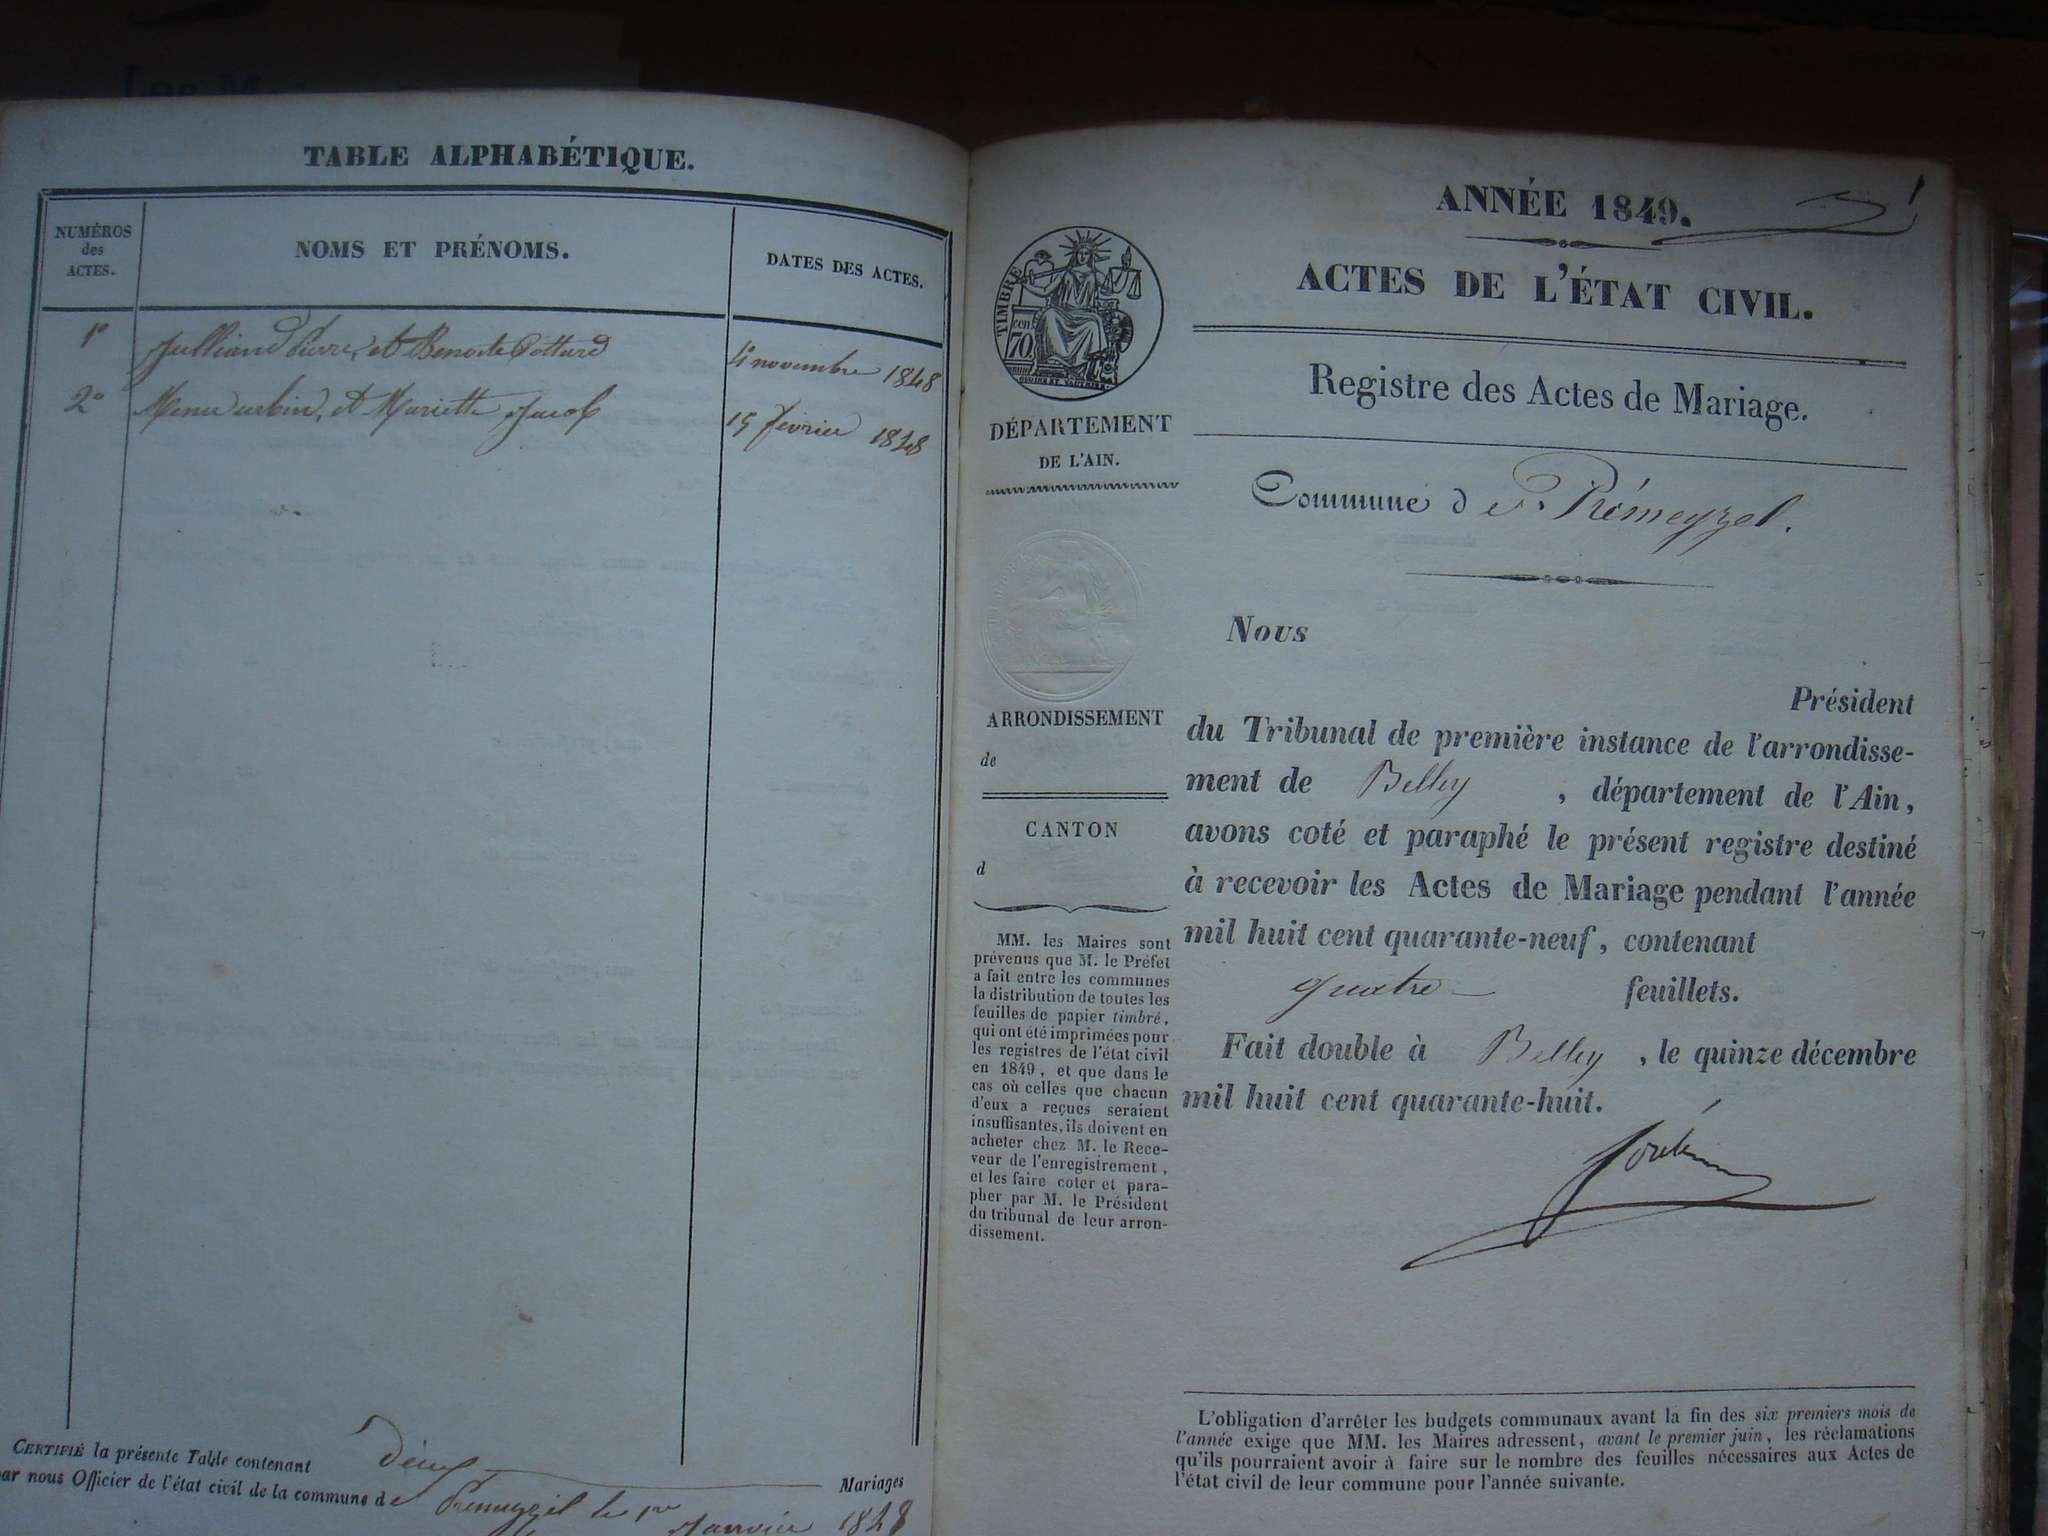 TABLE ALPHABÉTIQUE.
NUMÉROS
des
ACTES.
NOMS ET PRÉNOMS.
DATES DES ACTES.
1° Julliand Pierre, et Benoite Pottard 4 novembre 1848
2° urbin, et Mariette Jacob 15 février 1848
CERTIFIÉ la présente Table contenant deux Mariages
par nous Officier de l'état civil de la commune de Prémeyzel le 1er
Janvier 1848
ANNÉE 1849.
1
ACTES DE L'ÉTAT CIVIL.
Registre des Actes de Mariage.
Commune de Prémeyzel.
TIMBRE
70 cen
DÉPARTEMENT
DE L'AIN.
ARRONDISSEMENT
de
CANTON
d
MM. les Maires sont
prévenus que M. le Préfet
a fait entre les communes
la distribution de toutes les
feuilles de papier timbré,
qui ont été imprimées pour
les registres de l'état civil
en 1849, et que dans le
cas où celles que chacun
d'eux a reçues seraient
insuffisantes, ils doivent en
acheter chez M. le Rece-
veur de l'enregistrement,
et les faire coter et para-
pher par M. le Président
du tribunal de leur arron-
dissement.
Nous
Président
du Tribunal de première instance de l'arrondisse-
ment de Belley, département de l'Ain,
avons coté et paraphé le présent registre destiné
à recevoir les Actes de Mariage pendant l'année
mil huit cent quarante-neuf, contenant
quatre feuillets.
Fait double à Belley, le quinze décembre
mil huit cent quarante-huit.
L'obligation d'arrêter les budgets communaux avant la fin des six premiers mois de
l'année exige que MM. les Maires adressent, avant le premier juin, les réclamations
qu'ils pourraient avoir à faire sur le nombre des feuilles nécessaires aux Actes de
l'état civil de leur commune pour l'année suivante.